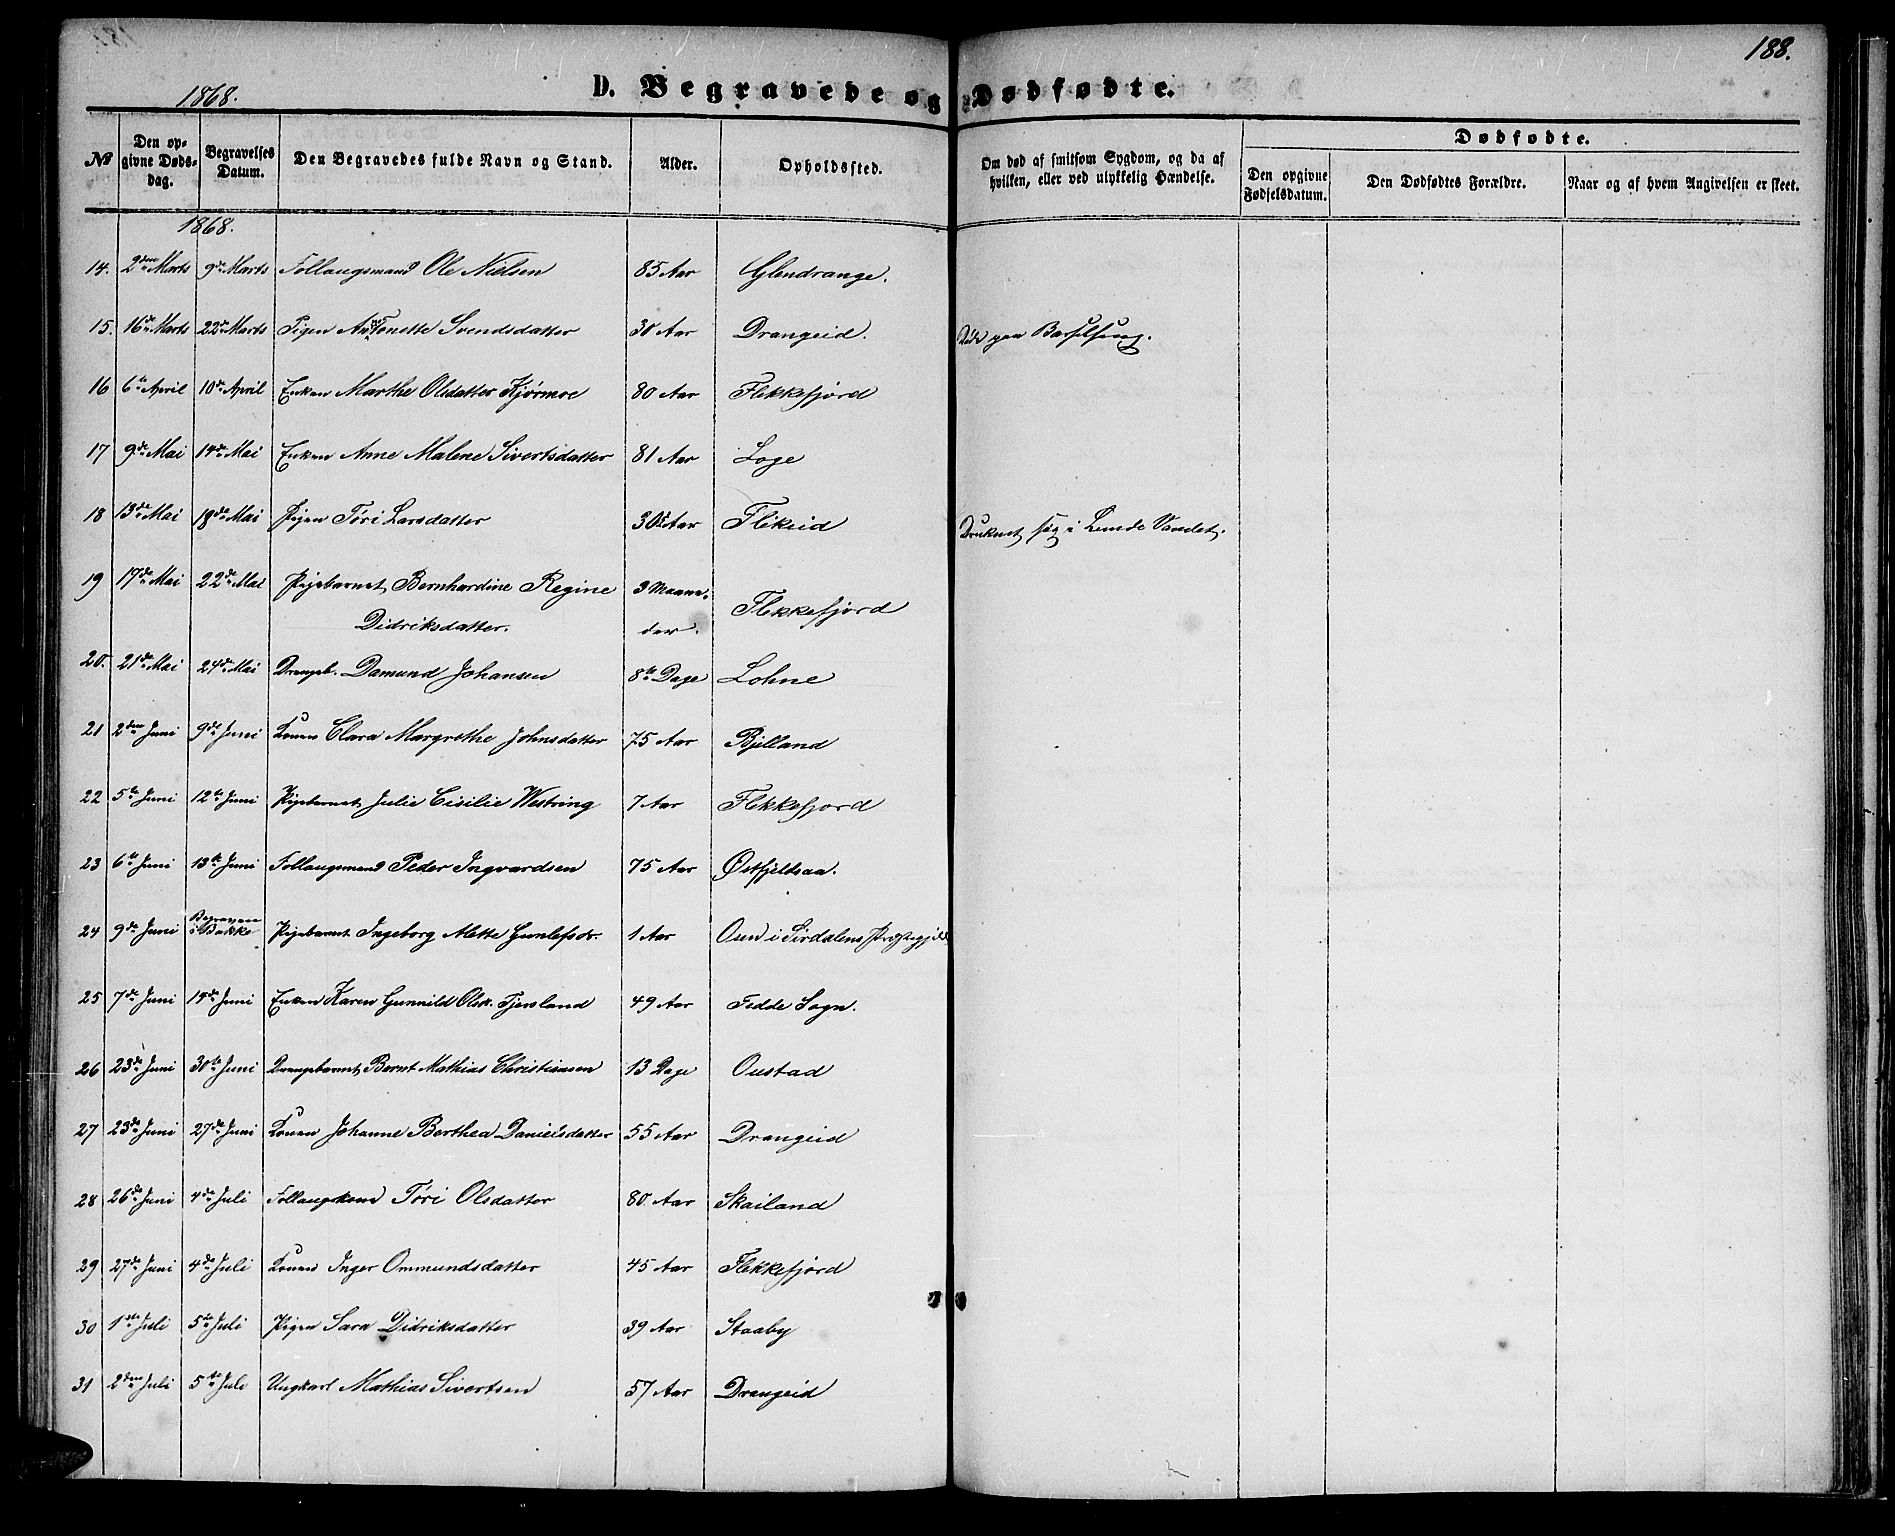 188.
1868.
D. Begravede og Dødfødte.
№
Den opgivne Dødsdag.
Begravelses Datum.
Den Begravedes fulde Navn og Stand.
Alder.
Opholdssted.
Om død af smitsom Sygdom, og da af hvilken, eller ved ulykkelig Hændelse.
Dødfødte.
Den opgivne Fødselsdatum.
Den Dødfødtes Forældre.
Naar og af hvem Angivelsen er skeet.
1868.
14. 2den Marts 9de Marts Follaugsmand Ole Nielsen 85 Aar Glendrange.
15. 16de Marts 22de Marts Pigen Antonette Svendsdatter 30 Aar Drangeid. Døde paa Barselseng.
16 6te April 10de April Enken Marthe Olsdatter Kjørmoe 80 Aar Flekkefjord
17 9de Mai 14de Mai Enken Anne Malene Sivertsdatter 81 Aar Loge
18 13de Mai 18de Mai Pigen Töri Larsdatter 30 Aar Flikeid Druknet sig i Lunde Vandet.
19 17de Mai 22de Mai Pigebarnet Bernhardine Regine 3 Maane-
Didriksdatter. der. Flekkefjord
20. 21de Mai 24de Mai Drengeb. Damund Johansen 8te Dage Lohne
21 2den Juni 9de Juni Konen Clara Margrethe Johnsdatter 75 Aar Bjelland
22 5te Juni 12te Juni Pigebarnet Julie Cisilie Westring 7 Aar Flekkefjord
23 6te Juni 13de Juni Follaugsmand Peder Ingvardsen 75 Aar Østfjeldsaa.
24 9de Juni Begraven i Bakke Pigebarnet Ingeborg Mette Gunlefsdr. 1 Aar Ousn i Sirdalens Præstegjeld
25 7de Juni 14de Juni Enken Karen Gunnild Olsd. Tjersland 49 Aar Fedde Sogn.
26 23de Juni 30te Juni Drengebarnet Bernt Mathias Christiansen 13 Dage Oustad
27 23de Juni 27de Juni Konen Johanne Berthea Danielsdatter 55 Aar Drangeid
28 26de Juni 4de Juli Follaugskone Töri Olsdatter 80 Aar Skailand
29 27de Juni 4de Juli Konen Inger Ommundsdatter 45 Aar Flekkefjord
30 1ste Juli 5te Juli Pigen Sara Didriksdatter 39 Aar Staaby
31 2den Juli 5te Juli Ungkarl Mathias Sivertsen 57 Aar Drangeid